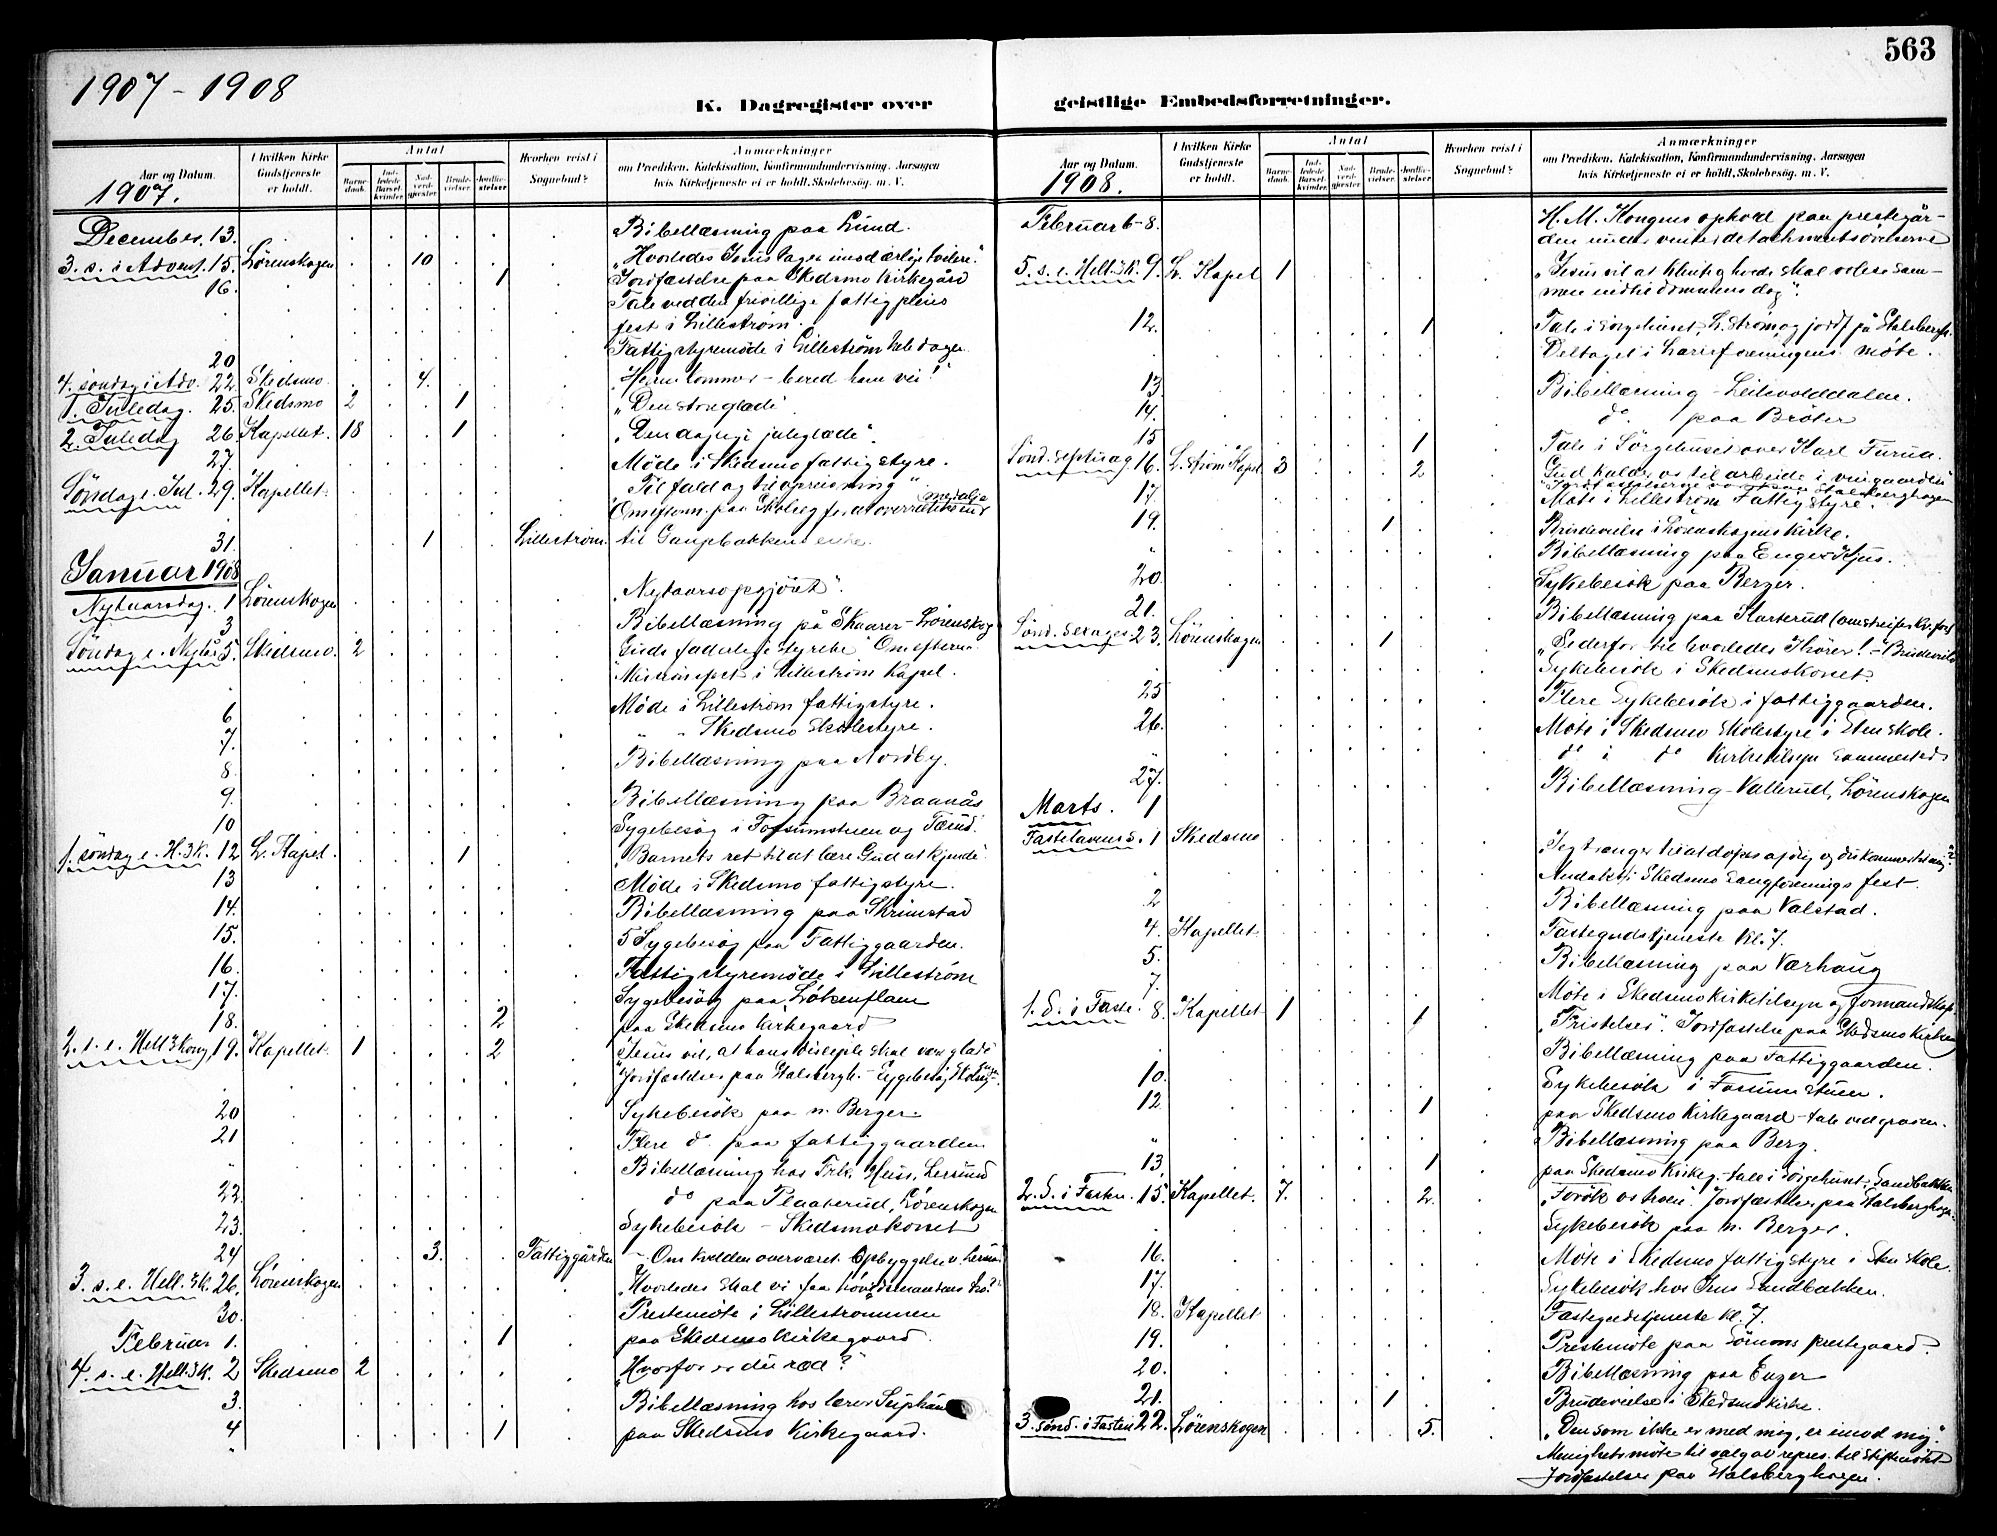 563
1907 - 1908
K. Dagregister over
Aar og Datum.
I hvilken Kirke Gudstjeneste er holdt.
Antal
Barnedaab.
Nadverdgjester
Brudevielser.
Jordfæstelser
Hvorhen reist i Sognebud?
Anmærkninger
om Prædiken, Katekisation, Konfirmandundervisning, Aarsagen
hvis Kirketjeneste ei er holdt, Skolebesøg. m. V.
1907.
December. 13. Bibellæsning paa Lund.
3. s. i Advent. 15. Lörenskogen 10 „Hvorledes Jesus tager imod ærlige tvilere."
16. 1 Jordfæstelse paa Skedsmo Kirkegård
Tale ved den frivillige fattigpleies
fest i Lilleström.
20 Fattigstyremöde i Lilleström
4. söndag i Adv. 22. Skedsmo. 4. „Herren kommer – bered ham vei!"
1. Juledag. 25. Skedsmo 2 1 „Den store glæde".
2. Juledag 26. Kapellet. 18 1 „Den dagligе juleglæde".
27. Möde i Skedsmo fattigstyre.
Söndag e. Jul. 29. Kapellet. „Til fald og til opreisning"
31. 1 Lilleström. til Gaupbakkens enke.
Januar 1908
Nytaarsdag. 1 Lörenskogen „Nytaarsopgjöret".
3 Bibellæsning på Skaarer – Lörenskog
Söndag e. Nytår 5. Skedsmo. 2 Guds faderlige styrelse
Missionsfest i Lilleström Kapel.
6 Möde i Lilleström fattigstyre.
7. " " Skedsmo Skolestyre.
8. Bibellæsning paa Nordby.
9. Bibellæsning paa Braanås
10 Sygebesög i Fossumstuen og Tærud.
1. söndag e. H. 3 K. 12 L. Kapel. 1 „Barnets ret til at lære Gud at kjende"
13 Möde i Skedsmo fattigstyre.
14. Bibellæsning paa Skrimstad
15. 5 Sygebesög paa Fattiggaarden.
16. Fattigstyremöde i Lilleström
17. Sygebesög paa Lökenflaen
18. 2 paa Skedsmo Kirkegaard
2. s. e. Hell 3 Kong. 19. Kapellet. 1 2 „Jesus vil, at hans disciple skal være glade"
Jordfæstelser paa Stalsbergh. – Sygebesög
20 Sykebesök paa n. Berger.
21 Flere do paa fattiggaarden
" Bibellæsning hos Frk. Huss, Lersund
22. do paa Plaaterud, Lörenskogen
23. Sykebesök – Skedsmokorset
24 3. Fattiggården – Om kvelden overværet opbyggelse
3. s. e. Hell. 3 K. 26. Lörenskogen „Hvorledes skal vi faa hövedsmandens tro?"
30. Prestemöte i Lilleströmmen
Februar 1. 1 paa Skedsmo Kirkegaard.
4. s. e. Hell. 3 K. 2 Skedsmo 2 „Hvorfor er du ræd?"
3. Bibellæsning hos lærer
4 1 paa Skedsmo Kirkegaard.
"
geistlige Embedsforretninger.
Aar og Datum.
I hvilken Kirke Gudstjeneste er holdt.
Antal
Barnedaab.
Nadverdgjester
Brudevielser.
Jordfæstelser
Hvorhen reist i Sognebud?
Anmærkninger
om Prædiken, Katekisation, Konfirmandundervisning, Aarsagen
hvis Kirketjeneste ei er holdt, Skolebesøg. m. V.
1908.
Februar 6-8. H. M. Kongens ophold paa prestegår-
den under vinterdetachmentsövelserne
5. s. e. Hell. 3 K. 9. L. Kapel 1 „Jesus vil at klinte og hvede skal vokse sam-
men indtil dommens dag".
12. 1 Tale i sörgehuset, L.ström og jordf. på Stalsbergh.
Deltaget i Lærerforeningens möte.
13 Bibellæsning –
14. do paa Bröter
15 1 Tale i Sörgehuset over Karl Furua.
Sönd. septuag. 16. L. ström Kapel 3 2 Gud kalder os til arbeide i vingaarden
Jordfæstelserne Stalsberghagen
17. Möte i Lilleström Fattigstyre.
19. 1 Brudevielse i Lörenskogens kirke.
" Bibellæsning paa Enger
20. Sykebesök paa Berger.
21. Bibellæsning paa
Sönd. Sexages. 23. Lörenskogen 1 „Se derfor til hvorledes I hörer! – Brudevielse
Sykebesök i Skedsmokorset
25 Flere Sykebesök i fattiggaarden.
26. Möte i Skedsmo Skolestyre i Sten skole.
" do i do Kirketilsyn sammesteds
27. Bibellæsning – Vallerud, Lörenskogen
Marts. 1
Fastelavnsd. 1 Skedsmo „Jeg trænger til at döpes af dig og du kommer til mig?"
Andakt i Skedsmo Sangforenings fest.
2 Bibellæsning paa Valstad.
4. Kapellet. Fastegudstjeneste Kl. 7.
5. Bibellæsning paa Værhaug
7. Möte i Skedsmo Kirketilsyn og formandskap.
1. S. i Faste. 8. Kapellet 1 1 „Fristelser". Jordfæstelse paa Skedsmo Kirkeg
Bibellæsning paa Fattiggaarden.
10. Sykebesök i Fossumstuen.
12 1 paa Skedsmo Kirkegaard – tale ved graven.
" Bibellæsning paa Berg.
13. 1 paa Skedsmo Kirkeg. – tale i Sörgehuset, Sandbakken
2. S. i Fasten. 15. Kapellet. 7. 2. „Forök os troen". Jordfæstelser paa Stalsberghagen.
Sykebesök paa n. Berger.
16. Möte i Skedsmo fattigstyre i Sten skole.
17. Sykebesök hos Jens Sandbakken.
18. Kapellet Fastegudstjeneste Kl. 7.
19. Prestemöte paa Sörums prestegaard.
20. Bibellæsning paa Enger
21. 1 Brudevielse i Skedsmo kirke.
3. sönd. i Fasten 22. Lörenskogen 5. „Den som ikke er med mig, er imod mig".
Menighetsmöte til valg av repres. til Stiftsmötet
Jordfæstelser paa Stalsberghagen.